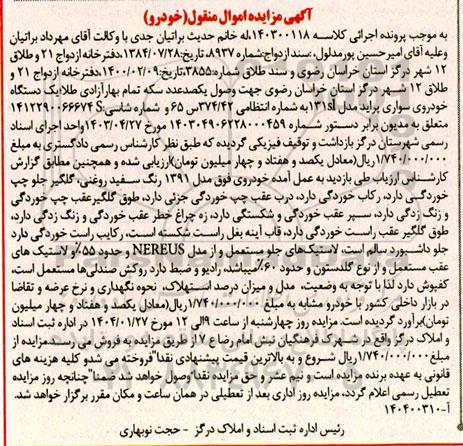 آگهی مزایده اموال منقول(خودرو)
به موجب پرونده اجرائی کلاسه ۱۴۰۳۰۰۱۱۸،له خانم حدیث براتیان جدی با وکالت آقای مهرداد براتیان
وعلیه آقای امیرحسین پورمدلول، سند ازدواج:شماره ۸۹۳۷، تاریخ:۱۳۸۴/۰۷/۲۸،دفترخانه ازدواج ۲۱ و طلاق
۱۲ شهر درگز استان خراسان رضوی و سند طلاق شماره:۳۸۵۵،تاریخ:۱۴۰۰/۰۲/۰۹،دفترخانه ازدواج ۲۱ و
طلاق ۱۲ شهر درگز استان خراسان رضوی جهت وصول یکصدعدد سکه تمام بهارآزادی طلایک دستگاه
خودروی سواری پراید مدل ۱۳۱sl به شماره انتظامی ۳۷۴/۴۲س ۶۵ و شماره شاسی:S ۱۴۱۲۲۹۰۰۶۶۶۷۴
متعلق به مدیون برابر دستور شماره ۱۴۰۳۰۴۹۰۶۲۲۸۰۰۰۴۵۹ مورخ ۱۴۰۳/۰۴/۲۷واحد اجرای اسناد
رسمی شهرستان درگز بازداشت و توقیف فیزیکی گردیده که طبق نظر کارشناس رسمی دادگستری به مبلغ
۱/۷۴۰/۰۰۰/۰۰۰ریال(معادل یکصد و هفتاد و چهار میلیون تومان)ارزیابی شده و همچنین مطابق گزارش
کارشناس ارزیاب طی بازدید به عمل آمده خودروی فوق مدل ۱۳۹۱ رنگ سفید روغنی، گلگیر جلو چپ
خوردگی دارد، رکاب خوردگی دارد، درب عقب چپ خوردگی جزئی دارد، طوق گلگیرعقب چپ خوردگی
و زنگ زدگی دارد، سپر عقب خوردگی و شکستگی دارد، زه چراغ خطر عقب خوردگی و زنگ زدگی دارد،
طوق گلگیر عقب راست خوردگی دارد، قاب آینه بغل راست شکسته است، رکایب راست خوردگی دارد
جلو داشبورد سالم است، لاستیک‌های جلو مستعمل و از مدل NEREUS و حدود ۵۵٪و لاستیک های
عقب مستعمل و از نوع گلدستون و حدود ۶۰٪میباشد، رادیو و ضبط دارد روکش صندلی‌ها مستعمل است،
کفپوش دارد لذا با توجه به وضعیت، مدل و میزان درصد استهلاک، نحوه نگهداری و نرخ عرضه و تقاضا
در بازار داخلی کشور با خودرو مشابه به مبلغ ۱/۷۴۰/۰۰۰/۰۰۰ریال(معادل یکصد و هفتاد و چهار میلیون
تومان)برآورد گردیده است. مزایده روز چهارشنبه از ساعت ۹الی ۱۲ مورخ ۱۴۰۴/۰۱/۲۷ در اداره ثبت اسناد
و املاک درگز واقع در شهرک فرهنگیان نبش امام رضا ع ۷از طریق مزایده به فروش می رسد.مزایده از
مبلغ۱/۷۴۰/۰۰۰/۰۰۰ریال شروع و به بالاترین قیمت پیشنهادی نقدا"فروخته می شدو کلیه هزینه های
قانونی به عهده برنده مزایده است و نیم عشر و حق مزایده نقدا"وصول خواهد شد ضمنا"چنانچه روز مزایده
تعطیل رسمی اعلام گردد، مزایده روز اداری بعد از تعطیلی در همان ساعت و مکان مقرر برگزار خواهد شد.
آ-۱۴۰۴۰۰۳۱۰
رئیس اداره ثبت اسناد و املاک درگز - حجت نوبهاری